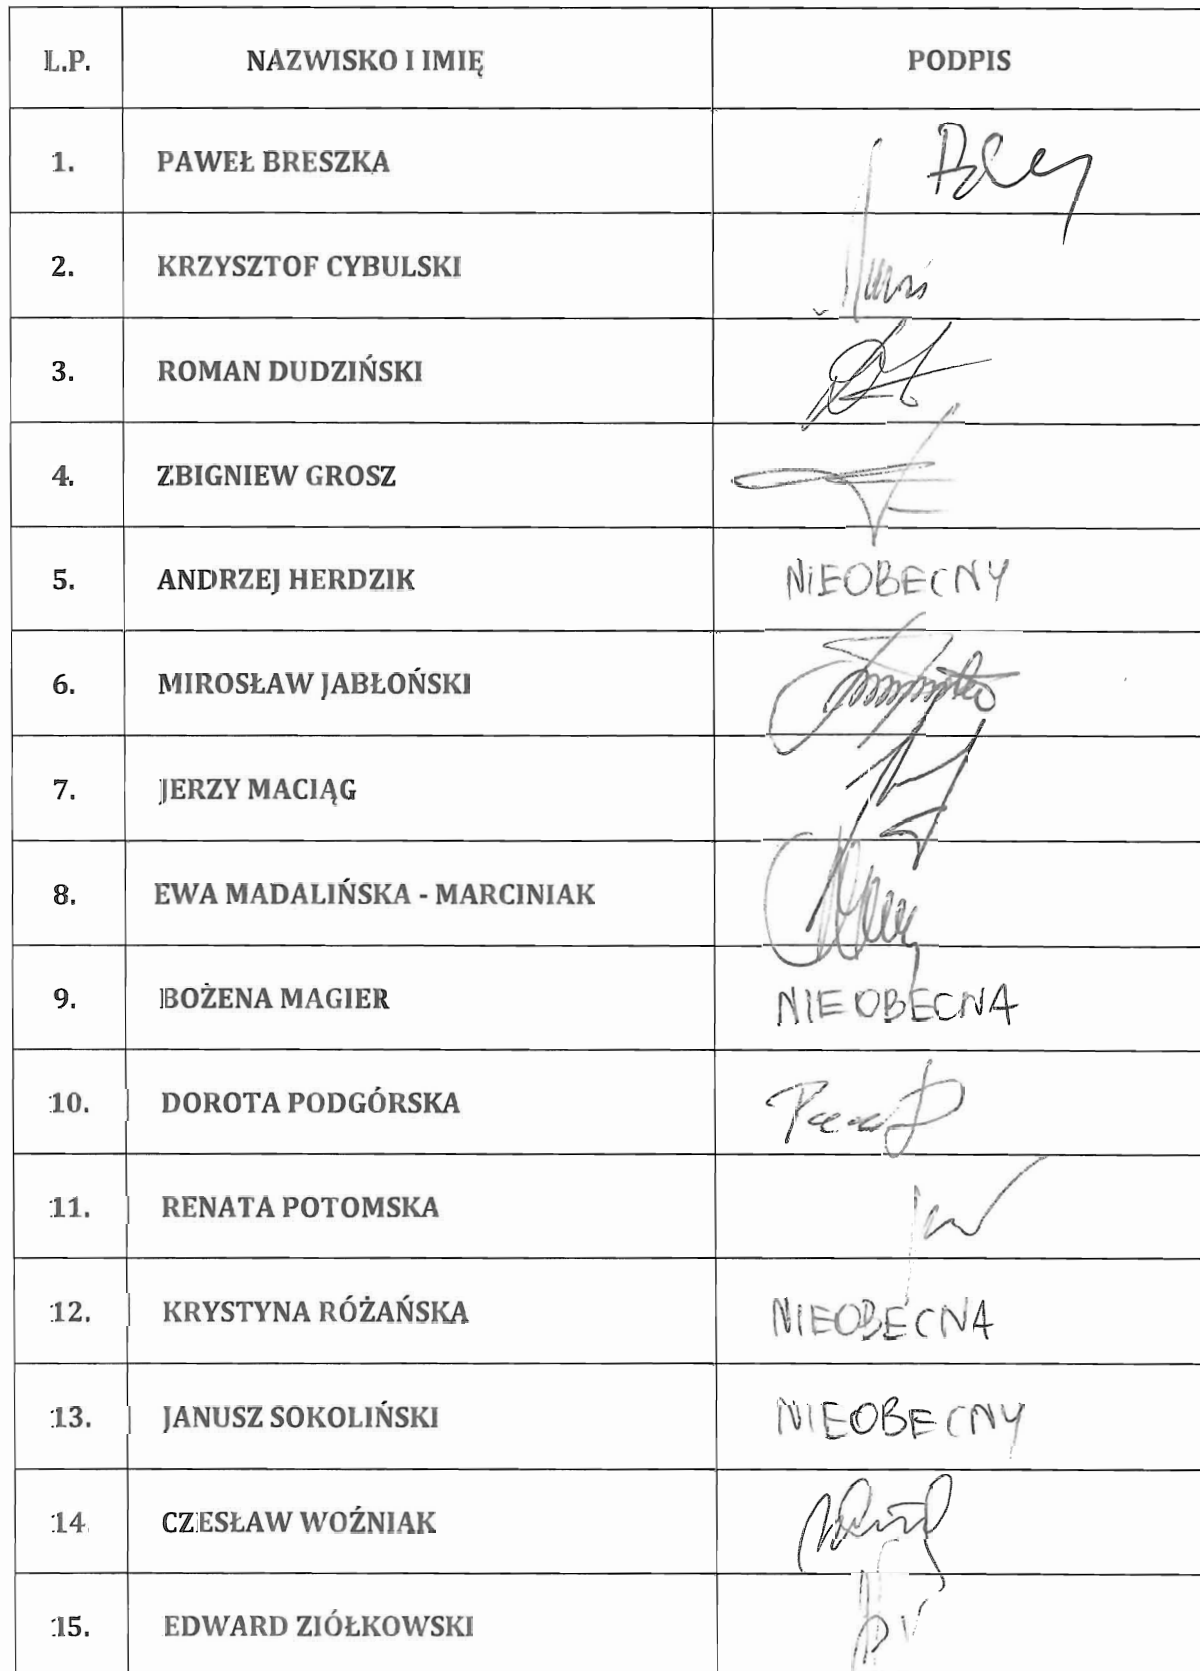 L.P. NAZWISKO I IMIĘ PODPIS
1. PAWEŁ BRESZKA
2. KRZYSZTOF CYBULSKI
3. ROMAN DUDZIŃSKI
4. ZBIGNIEW GROSZ
5. ANDRZEJ HERDZIK NIEOBECNY
6. MIROSŁAW JABŁOŃSKI
7. JERZY MACIĄG
8. EWA MADALIŃSKA - MARCINIAK
9. BOŻENA MAGIER NIEOBECNA
10. DOROTA PODGÓRSKA
11. RENATA POTOMSKA
12. KRYSTYNA RÓŻAŃSKA NIEOBECNA
13. JANUSZ SOKOLIŃSKI NIEOBECNY
14. CZESŁAW WOŹNIAK
15. EDWARD ZIÓŁKOWSKI